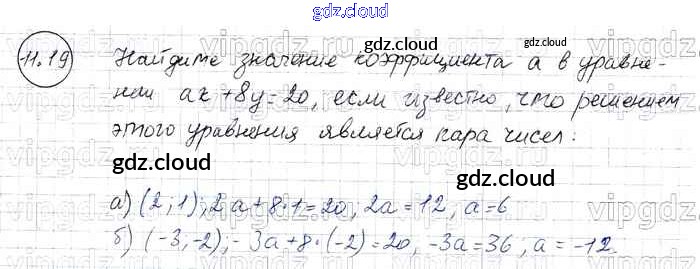 gdz.cloud
11.19 Найдите значение коэффициента a в уравне-
нии ax+8y=20, если известно, что решением
этого уравнения является пара чисел:
gdz.cloud
gdz.cloud
gdz.cloud
gdz.cloud
а) (2; 1); 2a+8·1=20, 2a=12, a=6
б) (-3; -2); -3a+8·(-2)=20, -3a=36; a=-12.
gdz.cloud
gdz.cloud